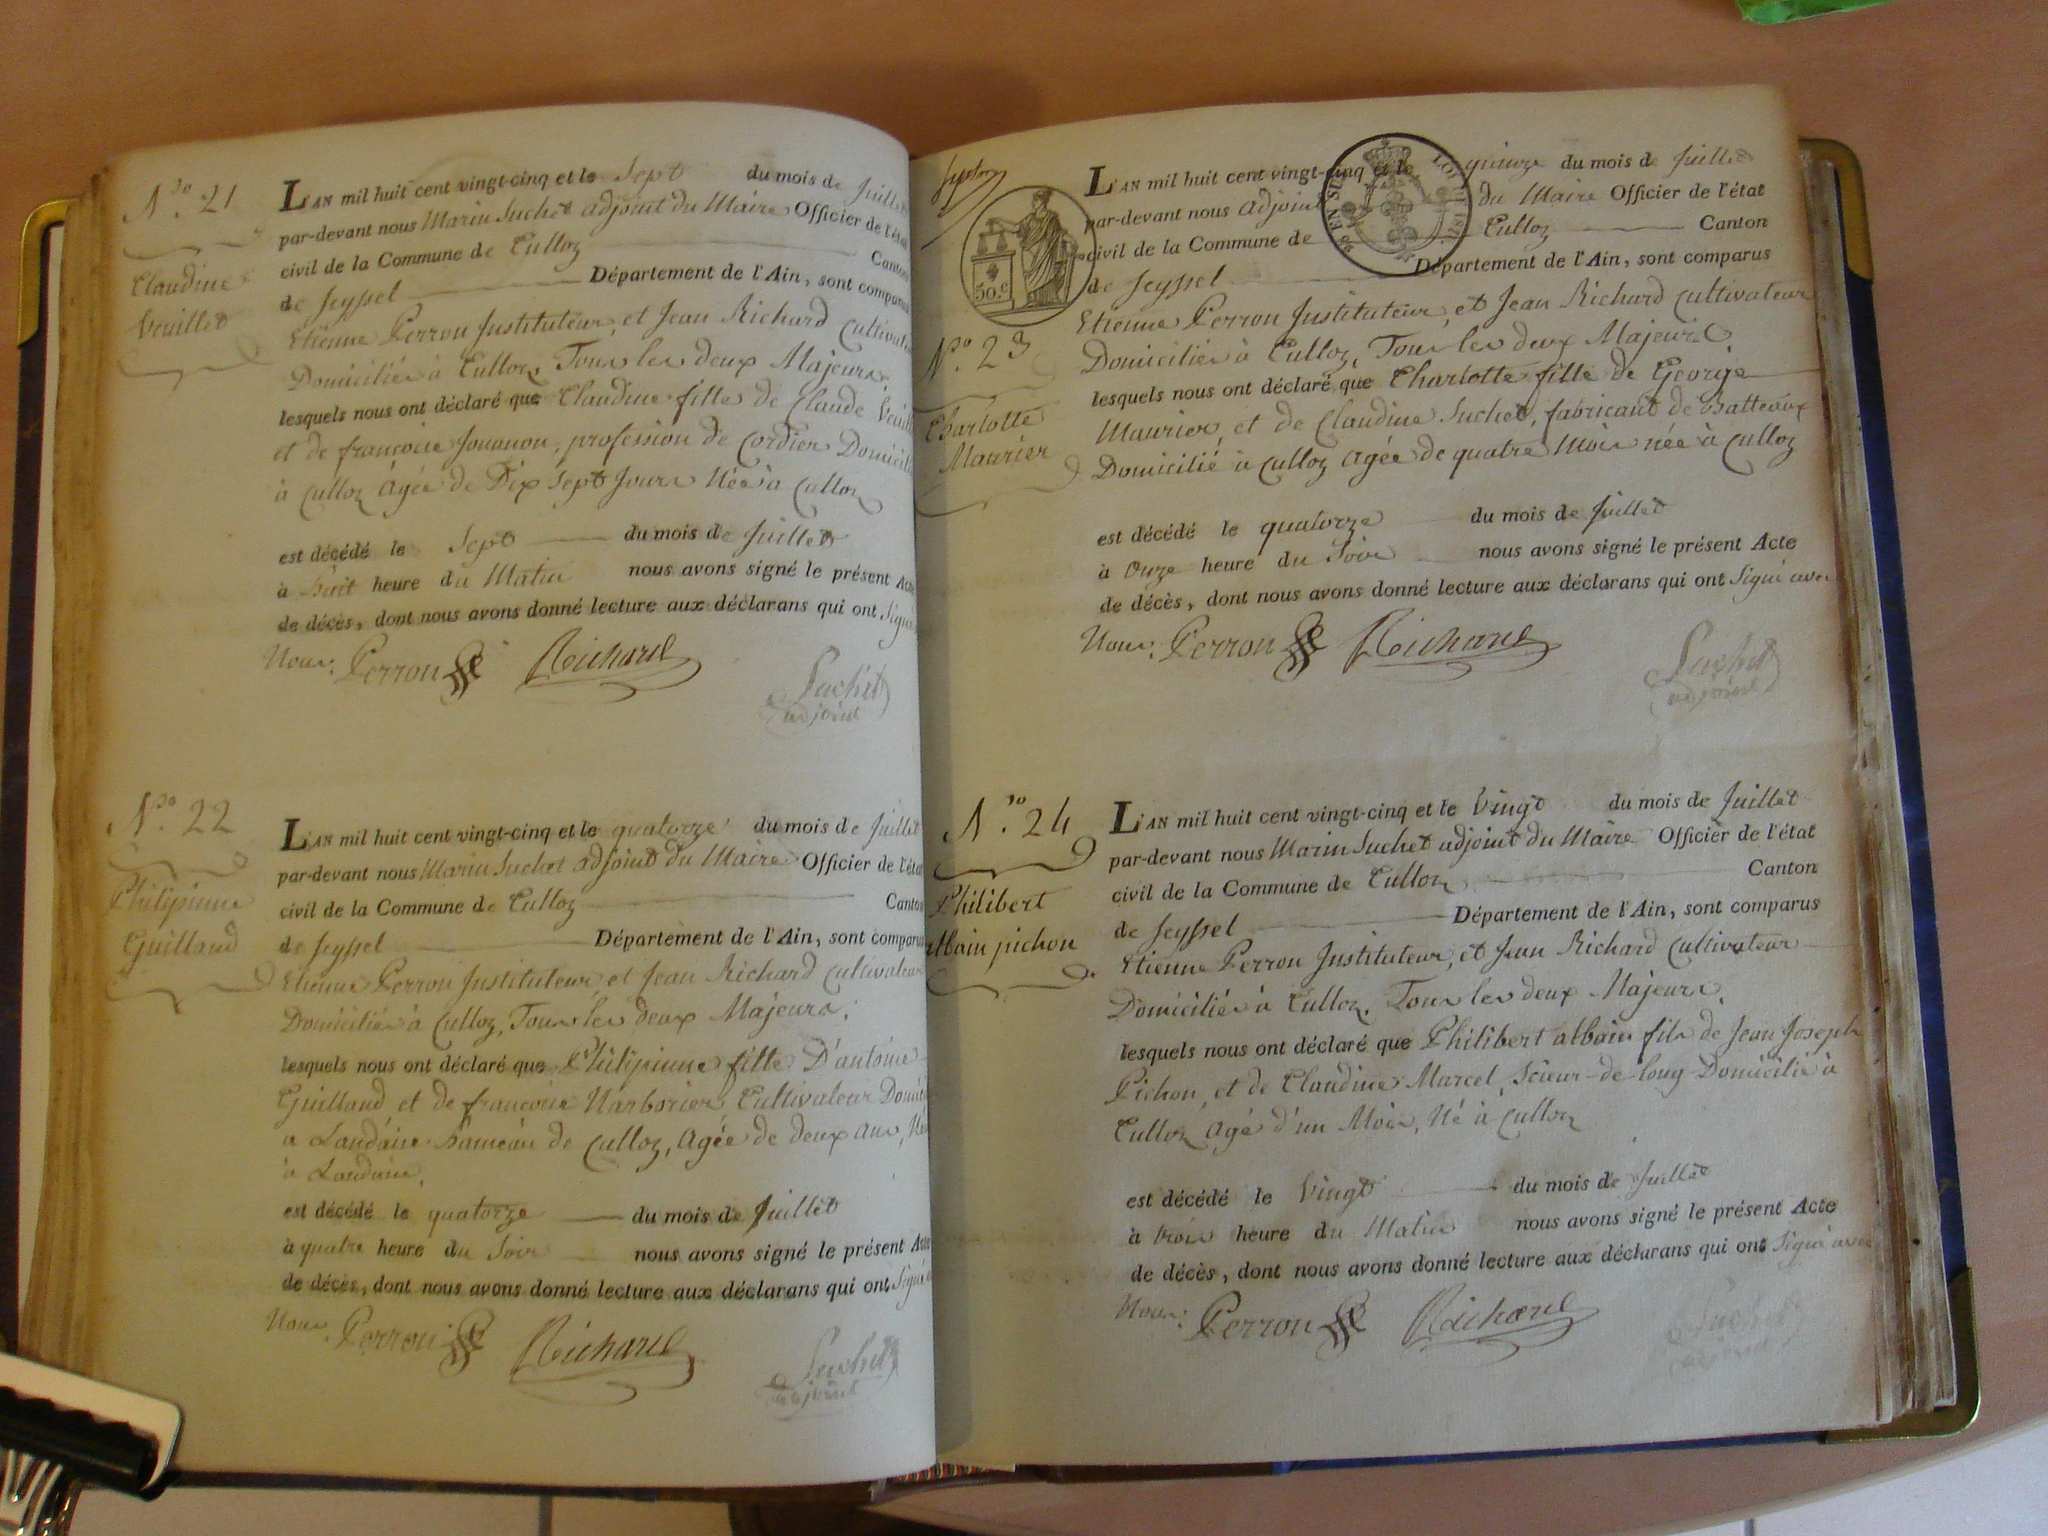 N.ro 21
Claudine
Veuillet
L'AN mil huit cent vingt-cinq et le Sept du mois de Juillet
par-devant nous Marin Suchet adjoint du Maire Officier de l'état
civil de la Commune de Culloz Canton
de Seyssel Département de l'Ain, sont comparus
Etienne Perron Instituteur, et Jean Richard Cultivateur
Domiciliés à Culloz, Tous les deux Majeurs,
lesquels nous ont déclaré que Claudine fille de Claude
et de françoise Jouanon, profession de Cordier
à Culloz Agée de Dix Sept Jours Née à Culloz
est décédé le Sept du mois de Juillet
à huit heure du Matin nous avons signé le présent Acte
de décès, dont nous avons donné lecture aux déclarans qui ont Signé
Nous. Perron Richard
Suchet
adjoint
N.ro 22
Philipinne
Guilland
L'AN mil huit cent vingt-cinq et le quatorze du mois de Juillet
par-devant nous Marin Suchet adjoint du Maire Officier de l'état
civil de la Commune de Culloz Canton
de Seyssel Département de l'Ain, sont comparus
Etienne Perron Instituteur, et Jean Richard Cultivateur
Domiciliés à Culloz, Tous les deux Majeurs,
lesquels nous ont déclaré que Philipinne fille D'antoine
Guilland et de françoise Narborier Cultivateur
a Landaise hameau de Culloz, Agée de deux ans,
à Landaise,
est décédé le quatorze du mois de Juillet
à quatre heure du Soir nous avons signé le présent Acte
de décès, dont nous avons donné lecture aux déclarans qui ont Signé
Nous. Perron Richard
Suchet
adjoint
50.c
N.ro 23
Charlotte
Maurier
L'AN mil huit cent vingt-cinq et le quinze du mois de Juillet
par-devant nous adjoint du Maire Officier de l'état
civil de la Commune de Culloz Canton
de Seyssel Département de l'Ain, sont comparus
Etienne Perron Instituteur, et Jean Richard Cultivateur
Domiciliés à Culloz, Tous les deux Majeurs
lesquels nous ont déclaré que Charlotte fille de George
Maurier, et de Claudine Suchet, fabricant de Batteaux
Domicilié à Culloz Agée de quatre Mois née à Culloz
est décédé le quatorze du mois de Juillet
à Onze heure du Soir nous avons signé le présent Acte
de décès, dont nous avons donné lecture aux déclarans qui ont Signé avec
Nous. Perron Richard
Suchet
adjoint
N.ro 24
Philibert
albain pichon
L'AN mil huit cent vingt-cinq et le Vingt du mois de Juillet
par-devant nous Marin Suchet adjoint du Maire Officier de l'état
civil de la Commune de Culloz Canton
de Seyssel Département de l'Ain, sont comparus
Etienne Perron Instituteur, et Jean Richard Cultivateur
Domiciliés à Culloz, Tous les deux Majeurs,
lesquels nous ont déclaré que Philibert albain fils de Jean Joseph
Pichon, et de Claudine Marcel, Scieur-de-long Domicilié à
Culloz Agé d'un Mois, Né à Culloz
est décédé le Vingt du mois de Juillet
à trois heure du Matin nous avons signé le présent Acte
de décès, dont nous avons donné lecture aux déclarans qui ont Signé avec
Nous. Perron Richard
Suchet
adjoint